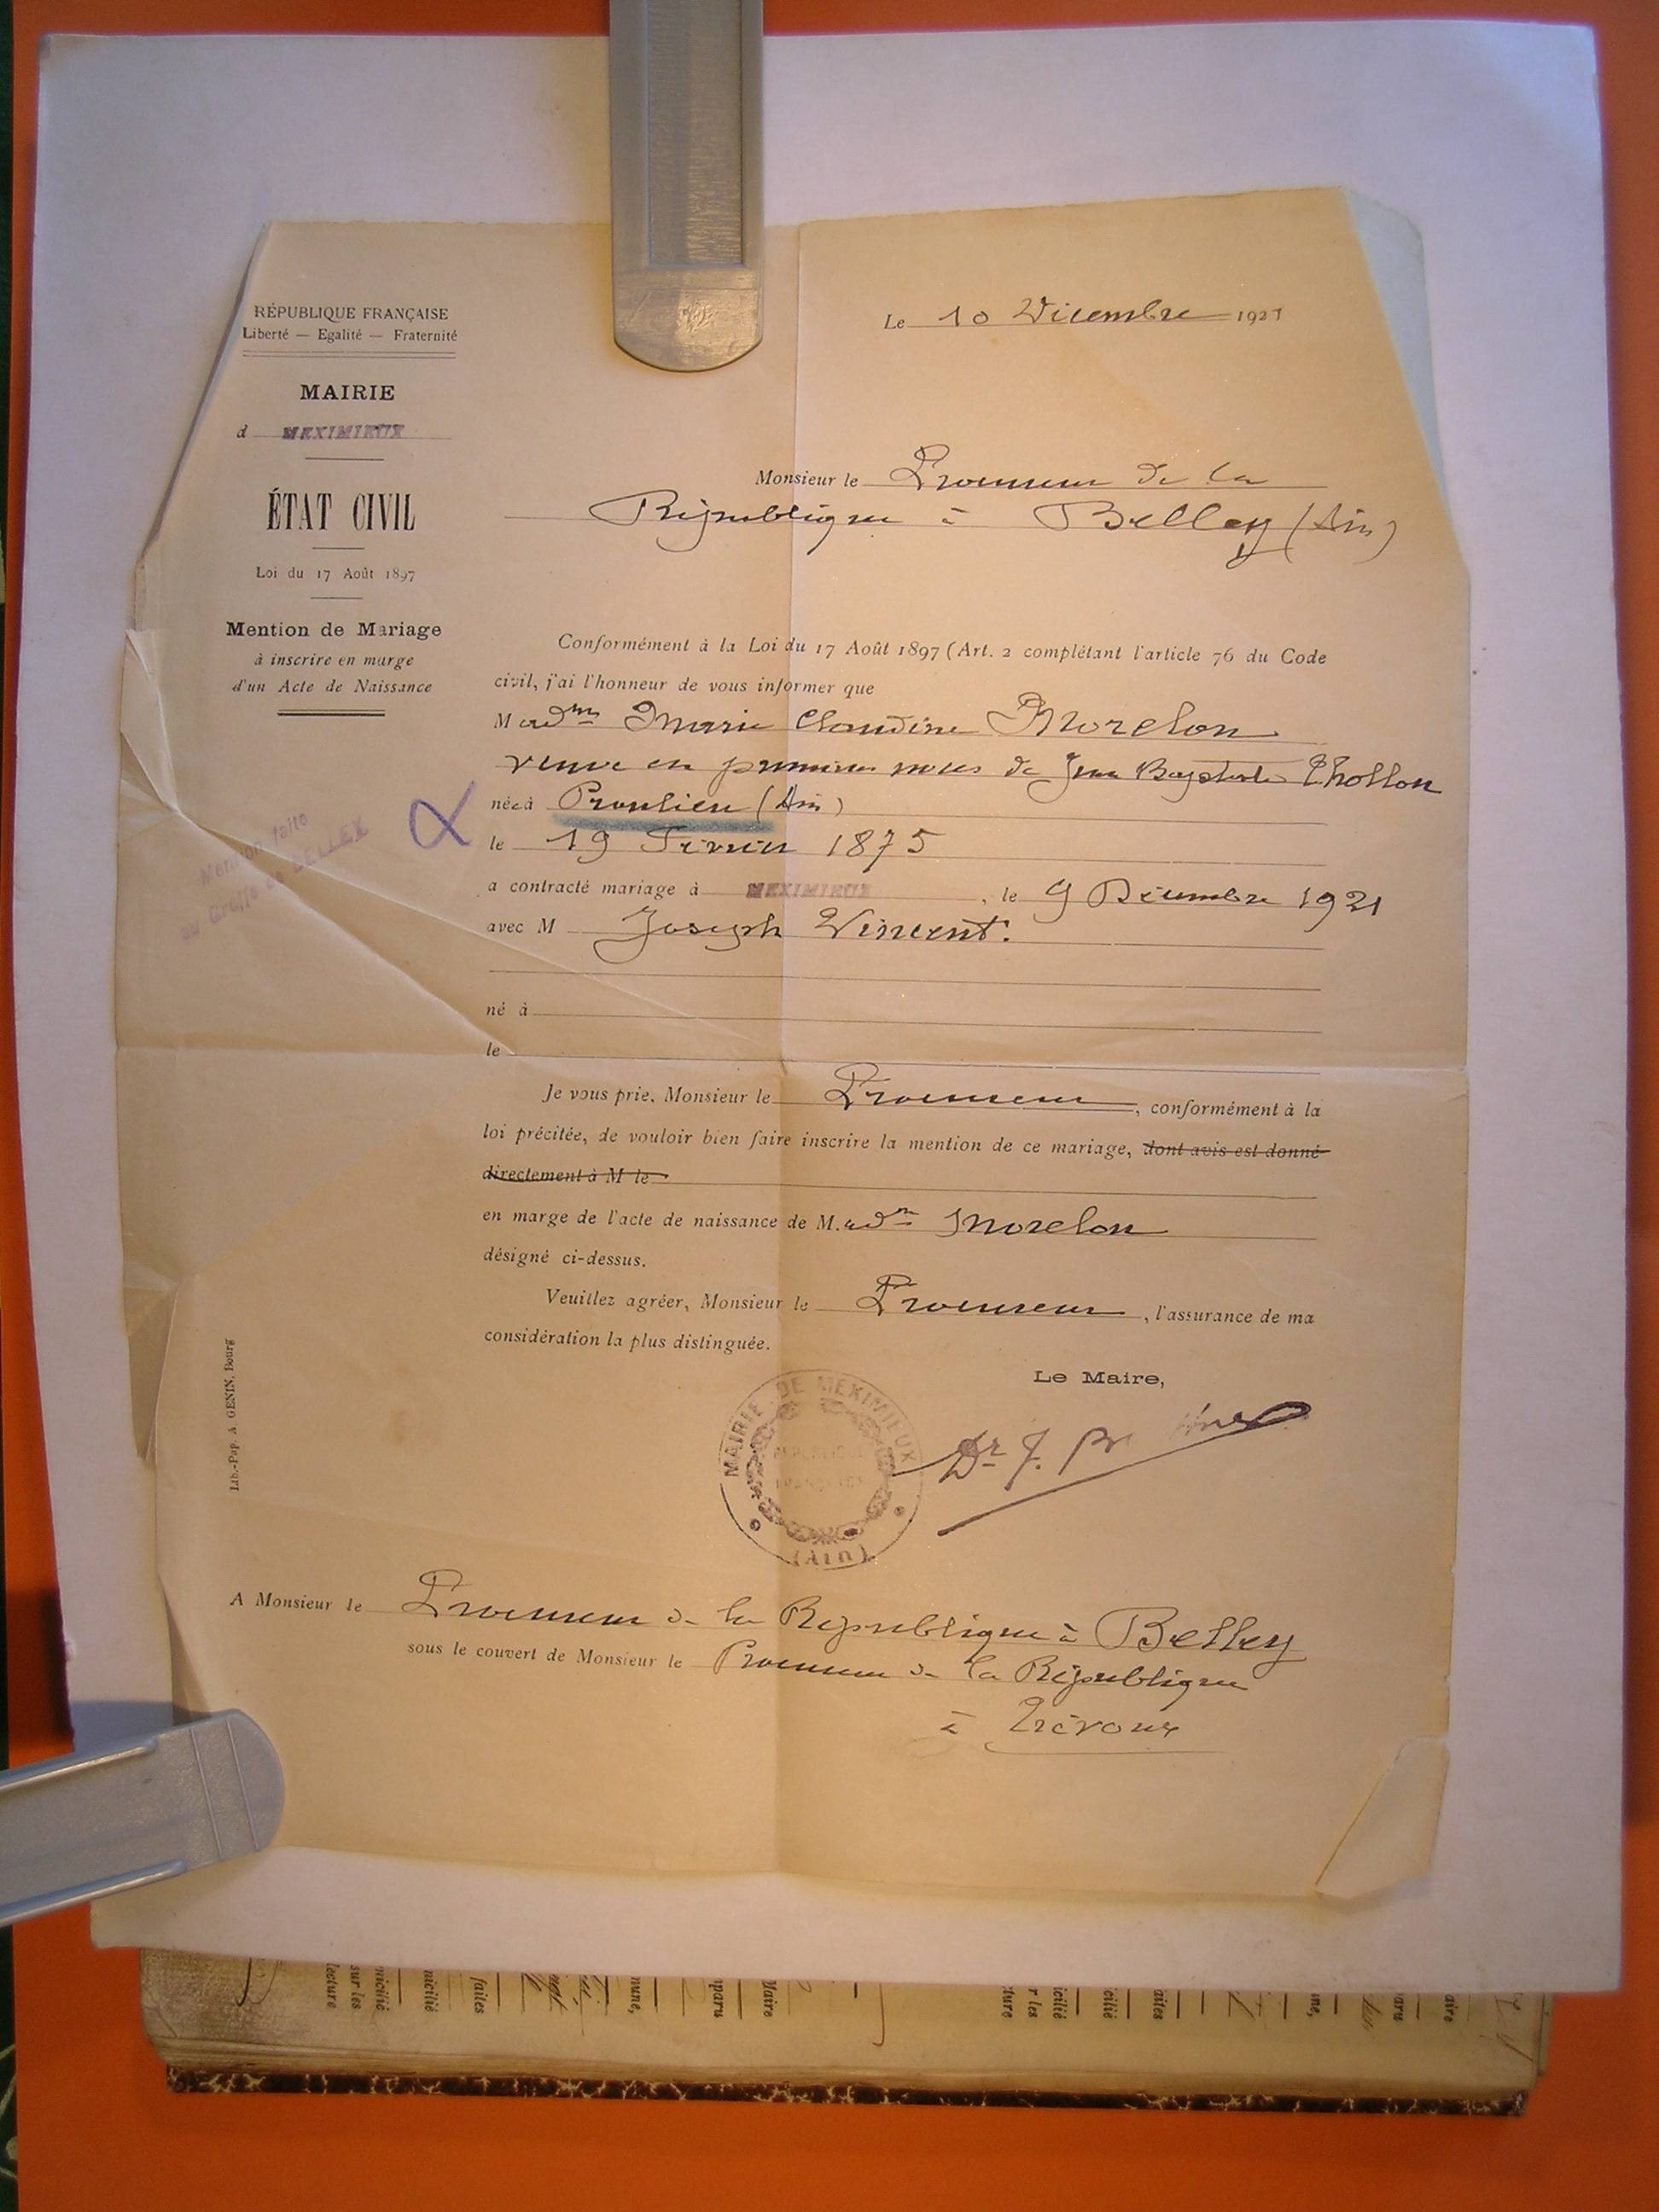 RÉPUBLIQUE FRANÇAISE
Liberté — Egalité — Fraternité
MAIRIE
d MEXIMIEUX
ÉTAT CIVIL
Loi du 17 Août 1897
Mention de Mariage
à inscrire en marge
d'un Acte de Naissance
Le 10 Décembre 1921
Monsieur le Procureur de la
République à Belley (Ain)
Conformément à la Loi du 17 Août 1897 (Art. 2 complétant l'article 76 du Code
civil, j'ai l'honneur de vous informer que
Madme Marie Claudine Morelon
veuve en premières noces de Jean Baptiste Thollon
née à Proulieu (Ain)
le 19 Février 1875
a contracté mariage à MEXIMIEUX, le 9 Décembre 1921
avec M Joseph Vincent.
né à
le
Mention faite
au Greffe de BELLEY
Je vous prie, Monsieur le Procureur, conformément à la
loi précitée, de vouloir bien faire inscrire la mention de ce mariage, dont avis est donné
directement à M le
en marge de l'acte de naissance de M.adme Morelon
désigné ci-dessus.
Veuillez agréer, Monsieur le Procureur, l'assurance de ma
considération la plus distinguée.
Le Maire,
Dr J.
MAIRIE DE MEXIMIEUX
RÉPUBLIQUE
FRANÇAISE
(Ain)
Lib.-Pap. A. GENIN, Bourg
A Monsieur le Procureur de la République à Belley
sous le couvert de Monsieur le Procureur de la République
à Trévoux
lecture
sur les
micilié
nicilié
faites
mune,
mparu
Maire
cture
r les
icilié
cilié
aites
une,
paru
aire